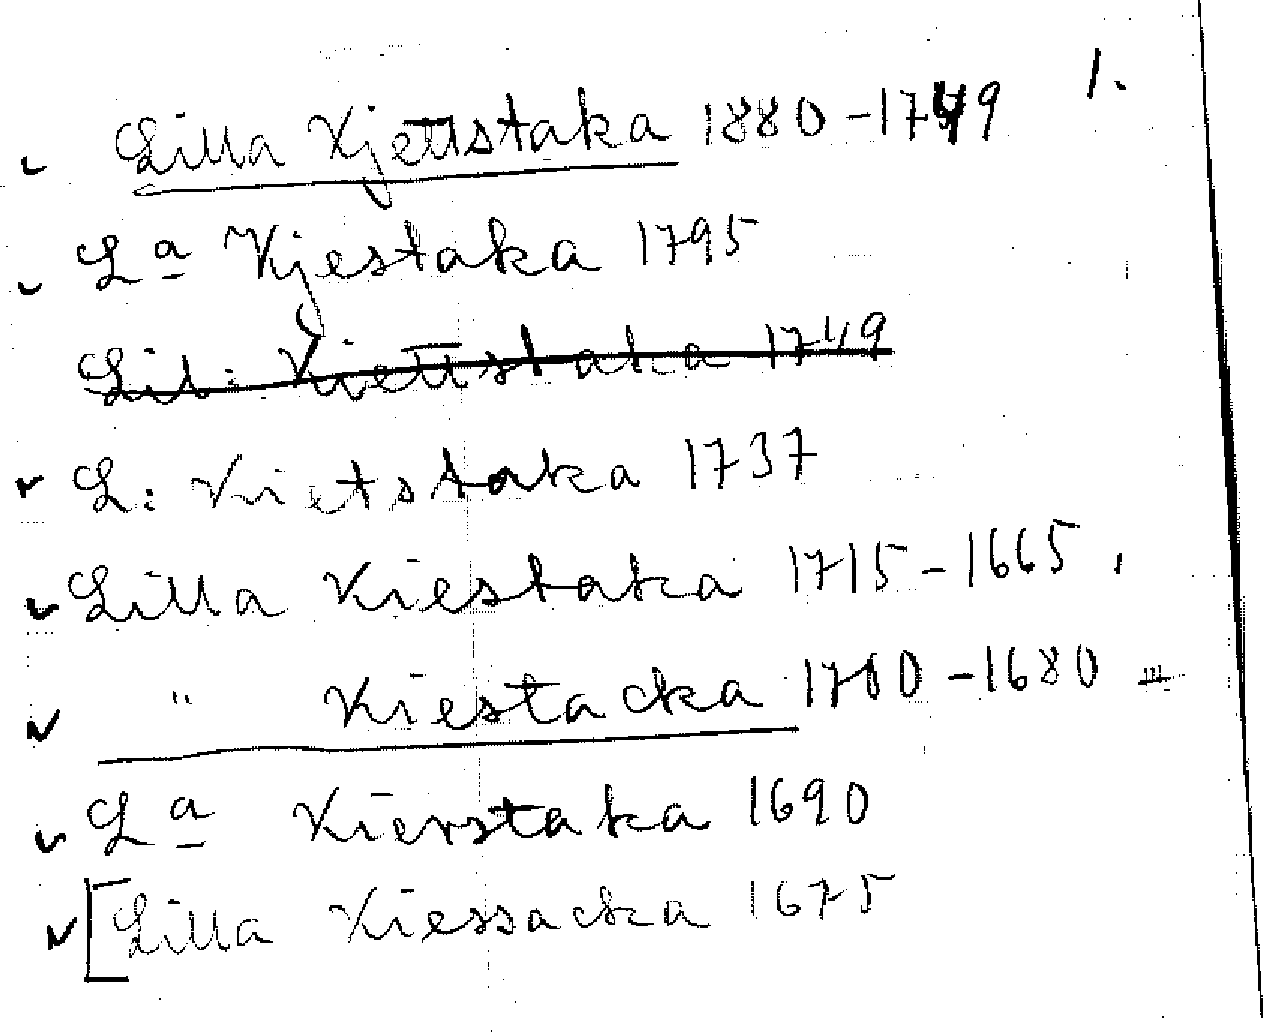 1.
Lilla Kjettstaka 1880-1749
La Kjestaka 1795
Lil: Kiettstaka 1749
L: Kietstaka 1737
Lilla Kiestaka 1715-1665
" Kiestacka 1700-1680
La Kierstaka 1690
[Lilla Kiessacka 1675